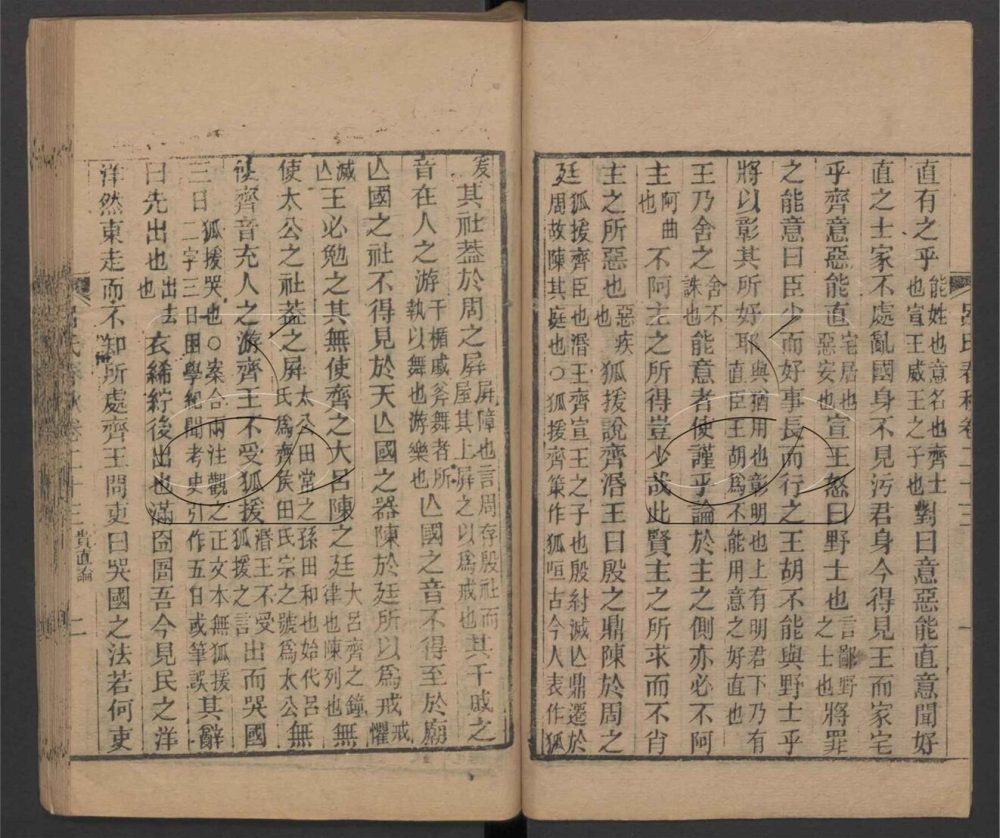 直有之乎能姓也意名也齊士也宣王威王之子也對曰意惡能直意聞好
直之士家不處亂國身不見污君身今得見王而家宅
乎齊意惡能直宅居也惡安也宣王怒曰野士也言鄙野之士也將罪
之能意曰臣少而好事長而行之王胡不能與野士乎
將以彰其所好耶與猶用也彰明也上有明君下乃有直臣王胡爲不能用意之好直也
王乃舍之舍不誅也能意者使謹乎論於主之側亦必不阿
主阿曲也不阿主之所得豈少哉此賢主之所求而不肖
主之所惡也惡疾也狐援說齊湣王曰殷之鼎陳於周之
廷狐援齊臣也湣王齊宣王之子也殷紂滅亾鼎遷於周故陳其庭也○狐援齊策作狐咺古今人表作狐
呂氏春秋卷二十三
一
爰其社葢於周之屛屛障也言周存殷社而屋其上屛之以爲戒也其干戚之
音在人之游干楯戚斧舞者所執以舞也游樂也亾國之音不得至於廟
亾國之社不得見於天亾國之器陳於廷所以爲戒戒懼
滅亾王必勉之其無使齊之大呂陳之廷大呂齊之鐘律也陳列也無
使太公之社葢之屛太公田常之孫田和也始代呂氏爲齊矦田氏宗之號爲太公無
使齊音充人之游齊王不受狐援湣王不受狐援之言出而哭國
三日狐援哭也○案合兩注觀之正文本無狐援二字三日困學紀聞考史引作五日或筆誤其辭
曰先出也出去也衣絺紵後出也滿囹圄吾今見民之洋
洋然東走而不知所處齊王問吏曰哭國之法若何吏
呂氏春秋卷二十三
貴直論
二